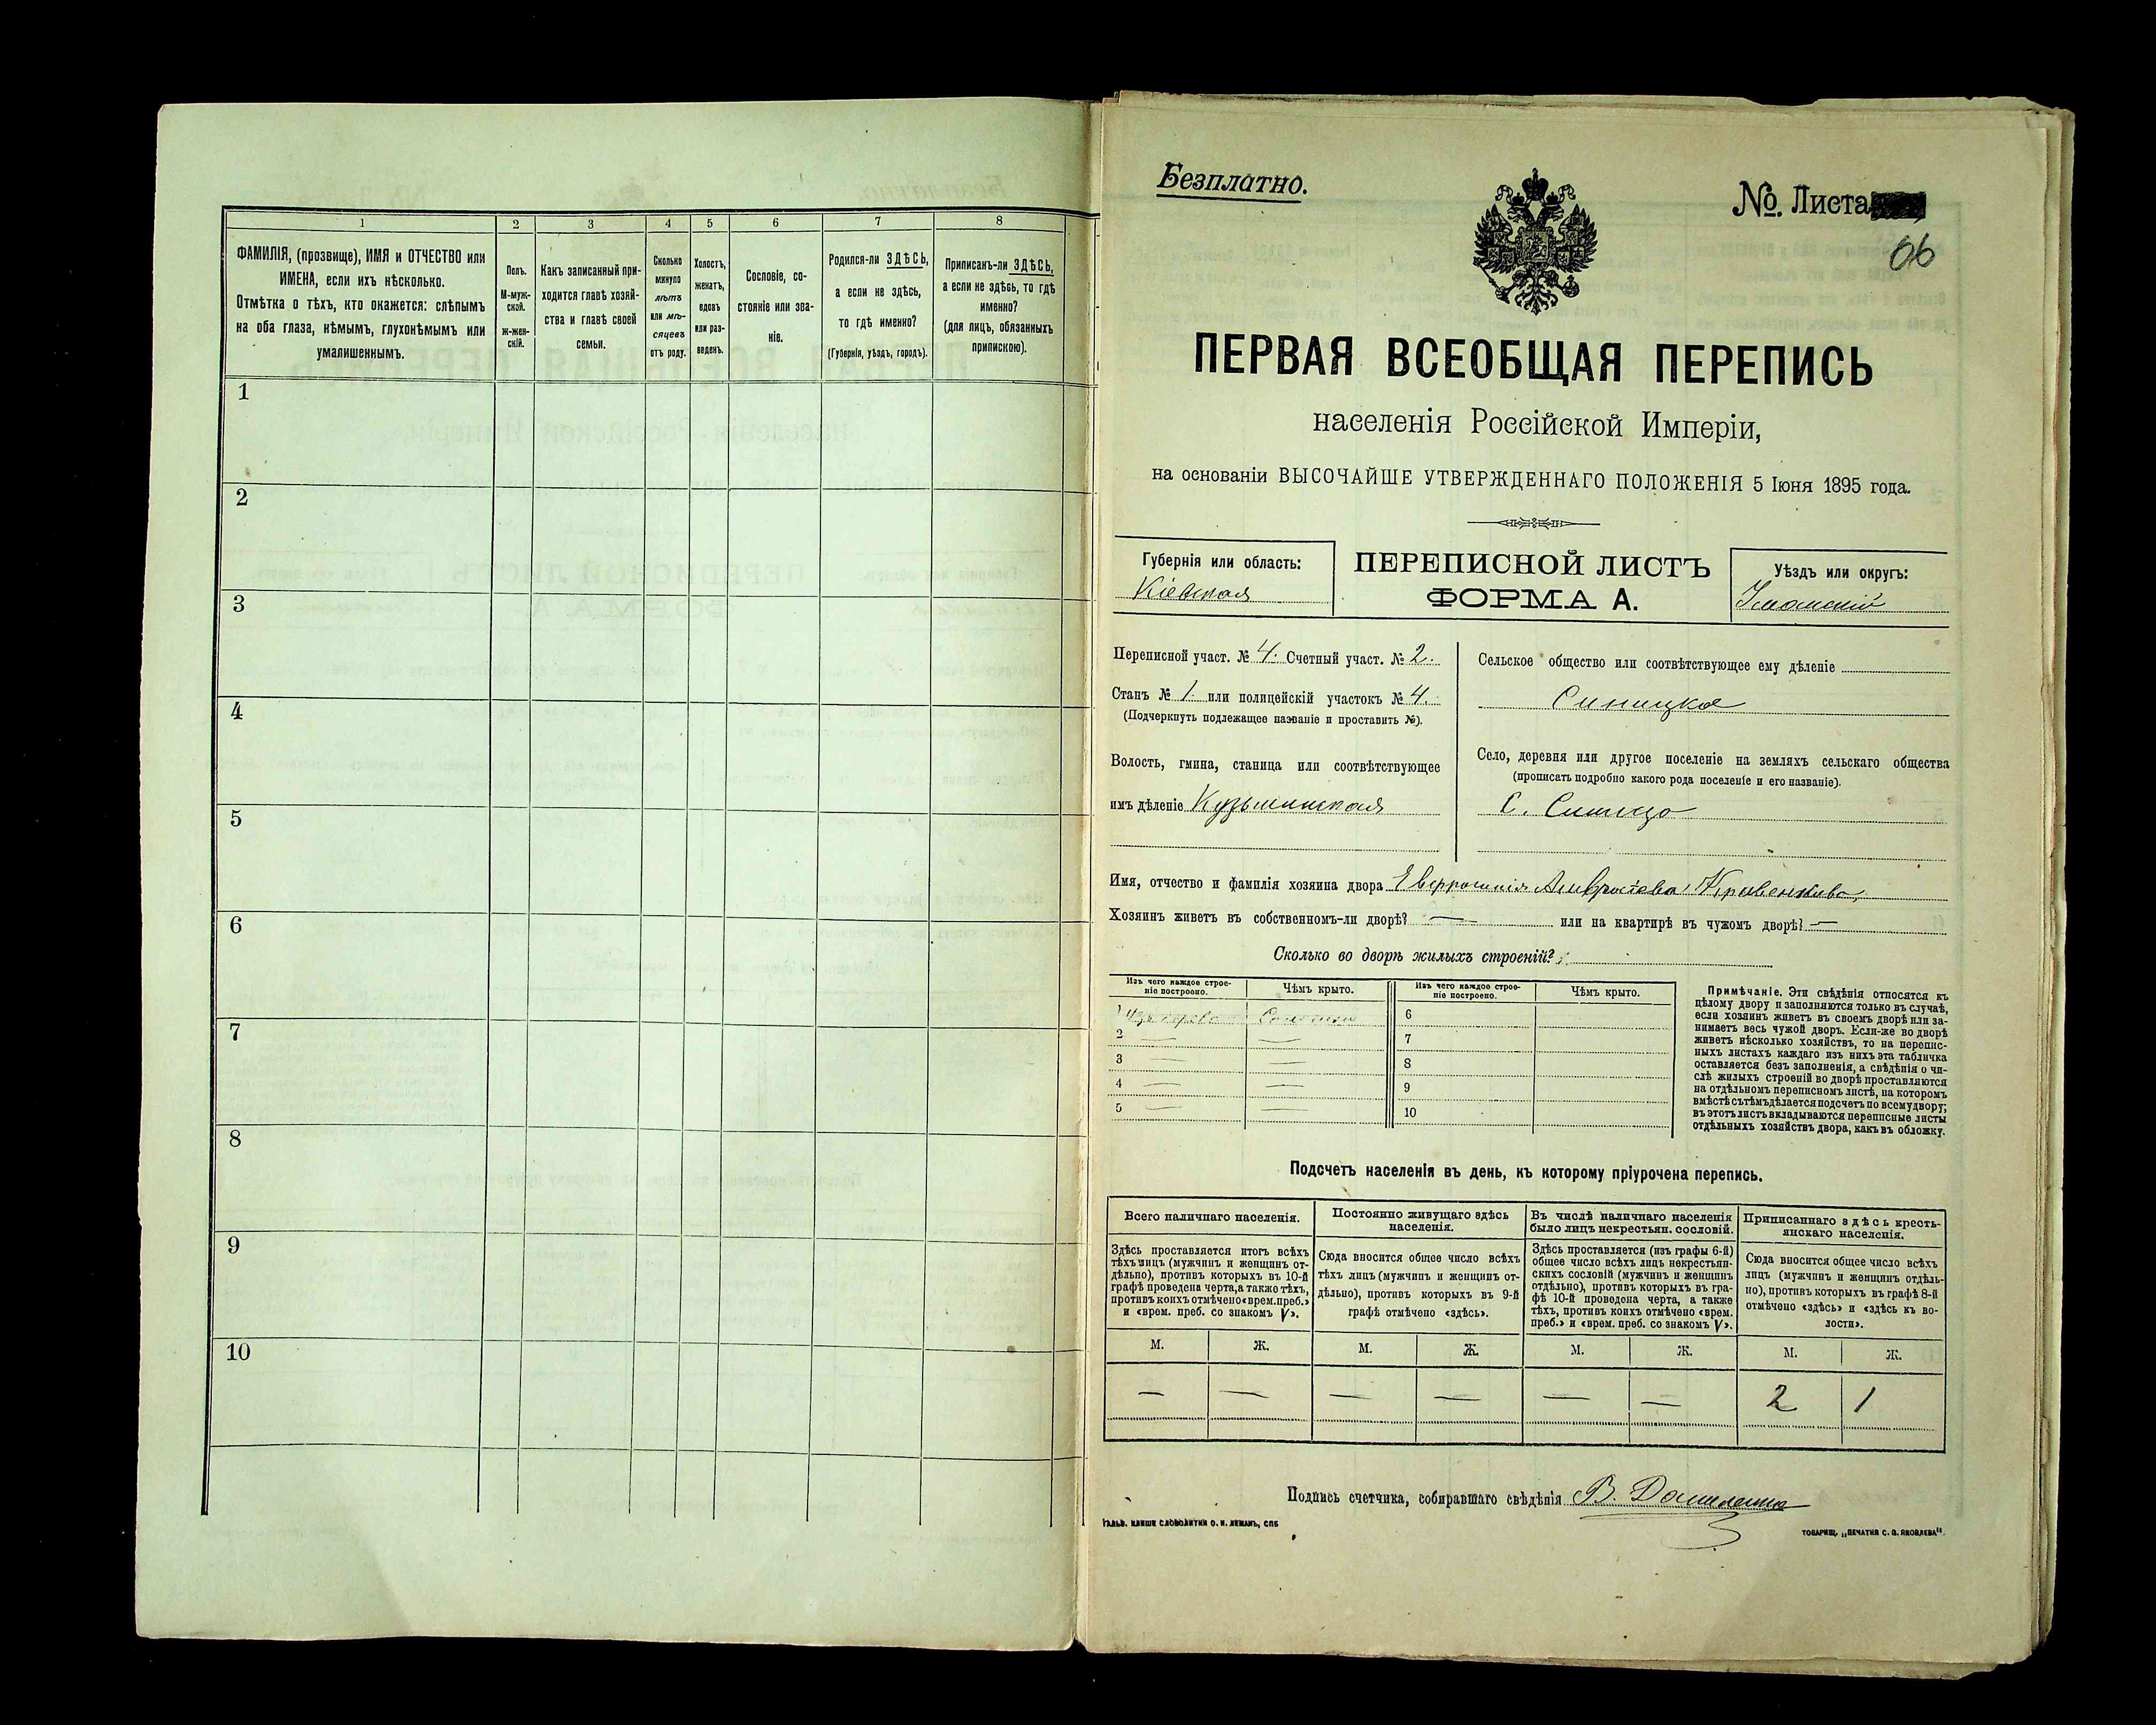 1
2
3
4
5
6
7
8
ФАМИЛІЯ, (прозвище), ИМЯ и ОТЧЕСТВО или
ИМЕНА, если ихъ нѣсколько.
Отмѣтка о тѣхъ, кто окажется: слѣпымъ
на оба глаза, нѣмымъ, глухонѣмымъ или
умалишеннымъ.
Полъ.
М-муж-
ской.
ж-жен-
скій.
Какъ записанный при-
ходится главѣ хозяй-
ства и главѣ своей
семьи.
Сколько
минуло
лѣтъ
или мѣ-
сяцевъ
отъ роду.
Холостъ,
женатъ,
вдовъ
или раз-
веденъ.
Сословіе, со-
стояніе или зва-
ніе.
Родился-ли ЗДѢСЬ,
а если не здѣсь,
то гдѣ именно?
(Губернія, уѣздъ, городъ).
Приписанъ-ли ЗДѢСЬ,
а если не здѣсь, то гдѣ
именно?
(для лицъ, обязанныхъ
припискою).
1
2
3
4
5
6
7
8
9
10
Безплатно.
№. Листа
66
ПЕРВАЯ ВСЕОБЩАЯ ПЕРЕПИСЬ
населенія Россійской Имперіи,
на основаніи ВЫСОЧАЙШЕ УТВЕРЖДЕННАГО ПОЛОЖЕНІЯ 5 Іюня 1895 года.
Губернія или область:
Кіевская
ПЕРЕПИСНОЙ ЛИСТЪ
ФОРМА А.
Уѣздъ или округъ:
Уманскій
Переписной участ. № 4. Счетный участ. № 2.
Станъ № 1. или полицейскій участокъ № 4.
(Подчеркнуть подлежащее названіе и проставить №).
Волость, гмина, станица или соотвѣтствующее
имъ дѣленіе Кузьминская
Сельское общество или соотвѣтствующее ему дѣленіе
Синицкое
Село, деревня или другое поселеніе на земляхъ сельскаго общества
(прописать подробно какого рода поселеніе и его названіе).
С. Синица
Имя, отчество и фамилія хозяина двора
Хозяинъ живетъ въ собственномъ-ли дворѣ? — или на квартирѣ въ чужомъ дворѣ? —
Сколько во дворѣ жилыхъ строеній?
Изъ чего каждое строе-
ніе построено.
Чѣмъ крыто.
Изъ чего каждое строе-
ніе построено.
Чѣмъ крыто.
1 Изъ дерева Соломою
2 — —
3 — —
4 — —
5 — —
6
7
8
9
10
Примѣчаніе. Эти свѣдѣнія относятся къ
цѣлому двору и заполняются только въ случаѣ,
если хозяинъ живетъ въ своемъ дворѣ или за-
нимаетъ весь чужой дворъ. Если-же во дворѣ
живетъ нѣсколько хозяйствъ, то на перепис-
ныхъ листахъ каждаго изъ нихъ эта табличка
оставляется безъ заполненія, а свѣдѣнія о чи-
слѣ жилыхъ строеній во дворѣ проставляются
на отдѣльномъ переписномъ листѣ, на которомъ
вмѣстѣ съ тѣмъ дѣлается подсчетъ по всему двору;
въ этотъ листъ вкладываются переписные листы
отдѣльныхъ хозяйствъ двора, какъ въ обложку.
Подсчетъ населенія въ день, къ которому пріурочена перепись.
Всего наличнаго населенія.
Здѣсь проставляется итогъ всѣхъ
тѣхъ лицъ (мужчинъ и женщинъ от-
дѣльно), противъ которыхъ въ 10-й
графѣ проведена черта, а также тѣхъ,
противъ коихъ отмѣчено «врем. преб.»
и «врем. преб. со знакомъ V».
Постоянно живущаго здѣсь
населенія.
Сюда вносится общее число всѣхъ
тѣхъ лицъ (мужчинъ и женщинъ от-
дѣльно), противъ которыхъ въ 9-й
графѣ отмѣчено «здѣсь».
Въ числѣ наличнаго населенія
было лицъ некрестьян. сословій.
Здѣсь проставляется (изъ графы 6-й)
общее число всѣхъ лицъ некрестьян-
скихъ сословій (мужчинъ и женщинъ
отдѣльно), противъ которыхъ въ гра-
фѣ 10-й проведена черта, а также
тѣхъ, противъ коихъ отмѣчено «врем.
преб.» и «врем. преб. со знакомъ V».
Приписаннаго здѣсь кресть-
янскаго населенія.
Сюда вносится общее число всѣхъ
лицъ (мужчинъ и женщинъ отдѣль-
но), противъ которыхъ въ графѣ 8-й
отмѣчено «здѣсь» и «здѣсь къ во-
лости».
М. Ж. М. Ж. М. Ж. М. Ж.
— — — — — — 2 1
Подпись счетчика, собиравшаго свѣдѣнія В.
ГАЛЬВ. КЛИШЕ СЛОВОЛИТНИ О. И. ЛЕМАНЪ, СПБ
ТОВАРИЩ. „ПЕЧАТНЯ С. П. ЯКОВЛЕВА“.